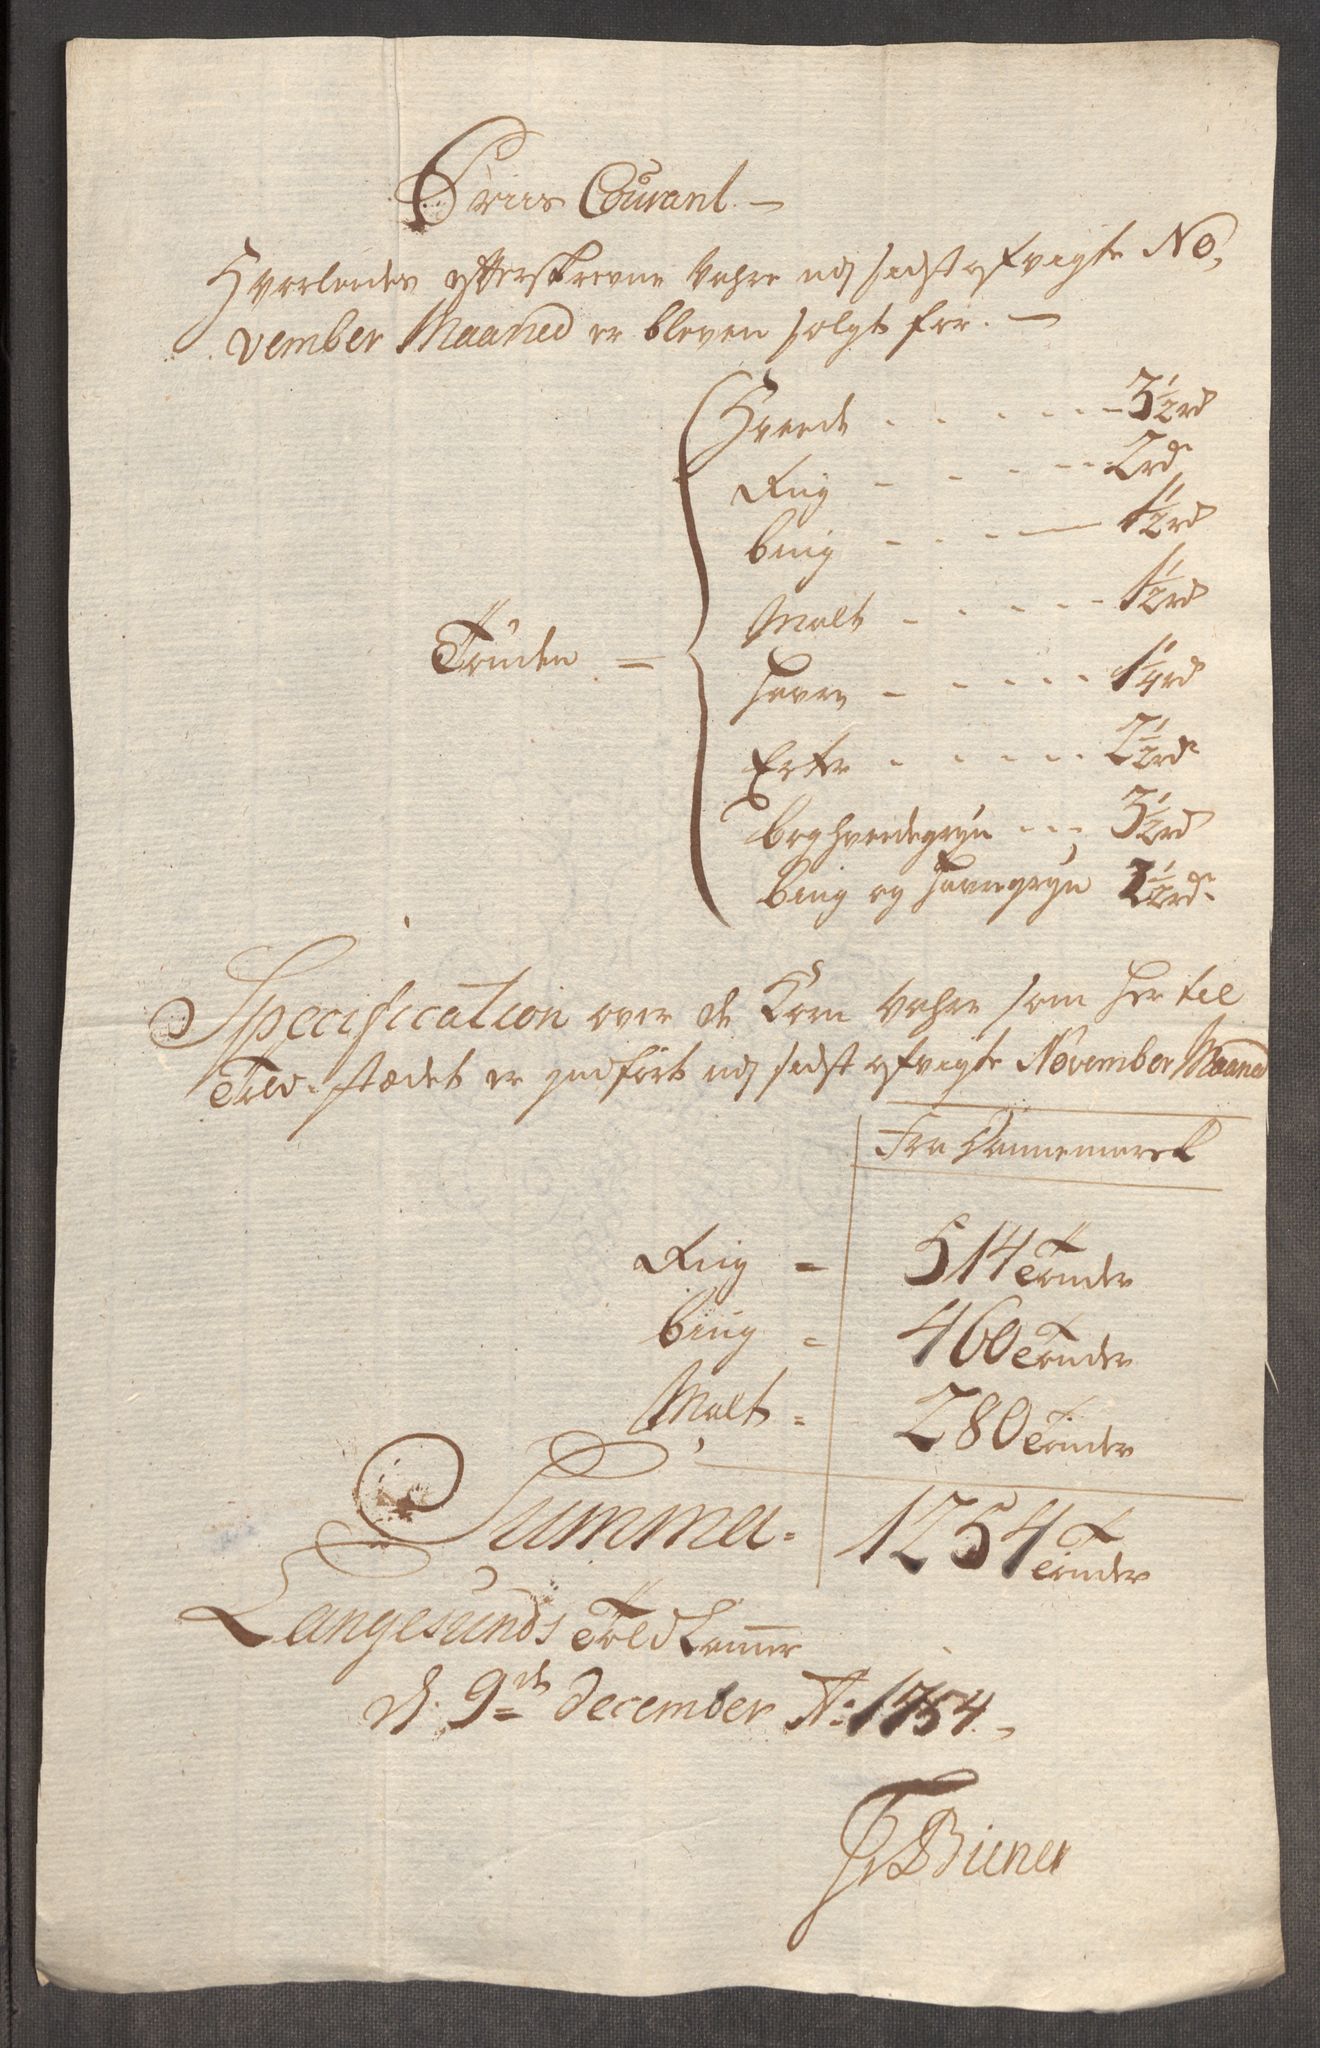 Priis Courant. —
Hvorledes efterskrevne Vahre udj sidst afvigte No,
vember Maaned er bleven solgt for. —
Hvede - - - - - - 3 1/2 rd
Rug - - - - - - 2 rdr
Biug - - - — 1 1/2 rd
Malt - - - - - - 1 1/2 rd
Tønden =
Havre - - - - - - 1 1/4 rd
Erter - - - - - - 2 1/2 rdr
Boghvedegryn - - - 3 1/2 rd
Biug og Havregryn 3 1/2 rdr.
Specification over de Korn Vahre som her til
Told-stædet er indført udj sidst afvigte November Maaned
Fra Dannemarck
Rug = 514 Tønder
Biug = 460 Tønder
Malt = 280 Tønder
Summa = 1254 Tønder
Langesunds Told Kammer
d. 9de December Ao 1754.
Biener